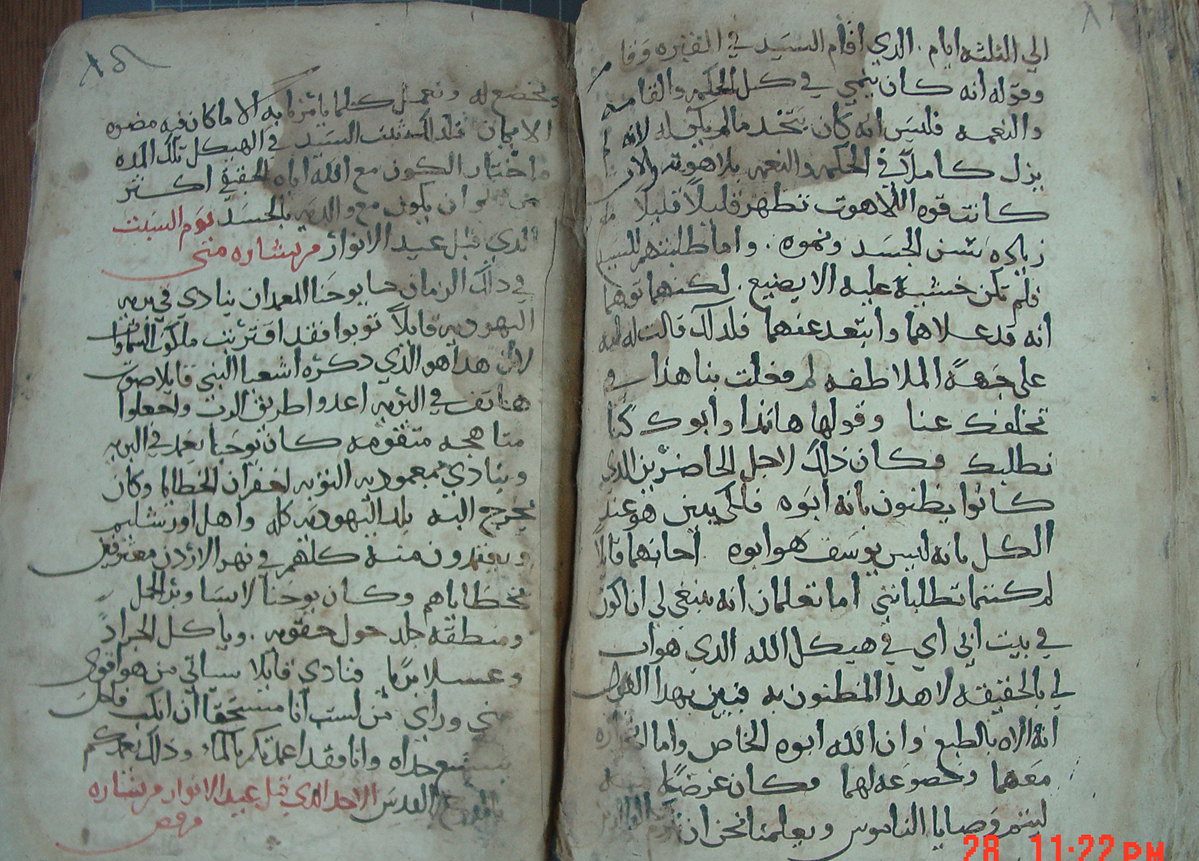 الي الثلثه ايام . الدي اقام السيد في القبر وقا
وقوله انه كان ينمي في كل الحكمه والقامه
والنعمه فليس انه كان يتخد مالم يكن له لانه لم
يزل كاملاً في الحكمه والنعمه بلاهوته والان
كانت قوه اللاهوت تظهر قليلاً قليلاً مع
زياده سن الجسد ونموه . واما طلبتهم للسيد
فلم تكن خشية عليه الا يضيع . لكنهما توهما
انه قد علاهما وابتعد عنهما فلدلك قالت له امه
علي جهة الملاطفه لم فعلت بنا هذا في
تخلفك عنا وقولها هاندا وابوك كنا
نطلبك فكان ذلك لاجل الحاضرين الدي
كانوا يظنون بانه ابوه فلكي يبين هو عند
الكل بانه ليس يوسف هو ابوه اجابهما قايلا
لم كنتما تطلباني اما تعلمان انه ينبغي لي ان اكون
في بيت ابي اي في هيكل الله الدي هو اب
لي بالحقيقه لا هدا المظنون به فبين بهدا القول
انه الاه بالطبع وان الله ابوه الخاص واما انحداره
معهما وخضوعه لهما فكان غرضه
ليتم وصايا الناموس ويعلمنا نحن ان
ونخضع له ونعمل كلما يامرنا به الا ما كان فيه مضره
الايمان فلدلك تثبت السيد في الهيكل تلك المده
واختار الكون مع الله اباه الحقيقي اكثر
من ان يكون مع والديه بالجسد يوم السبت
الدي قبل عيد الانوار من بشاره متي
في دلك الزمان جا يوحنا المعمدان ينادي في بريه
اليهوديه قايلاً توبوا فقد اقتربت ملكوت السماوات
لان هدا هو الدي دكره اشعيا النبي قايلا صوت
هاتف في البريه اعدوا طريق الرب واجعلوا
مناهجه متقومه كان يوحنا يعمد في البريه
وينادي بمعموديه التوبه لغفران الخطايا وكان
يخرج اليه بلد اليهوديه كله واهل اورشليم
ويعتمدون منه كلهم في نهر الاردن معترفين
بخطاياهم وكان يوحنا لابسا وبر الجمل
ومنطقه جلد حول حقويه . وياكل الجراد
وعسلا بريا فنادي قايلا سياتي من هو اقوي
مني وراي من لست انا مستحقا ان انكب فاحل
سيور حداه وانا فقد اعمدتكم بالماء وذاك يعمدكم
بالروح القدس الاحد الدي قبل عيد الانوار من بشاره
مرقص
28 11:22 PM